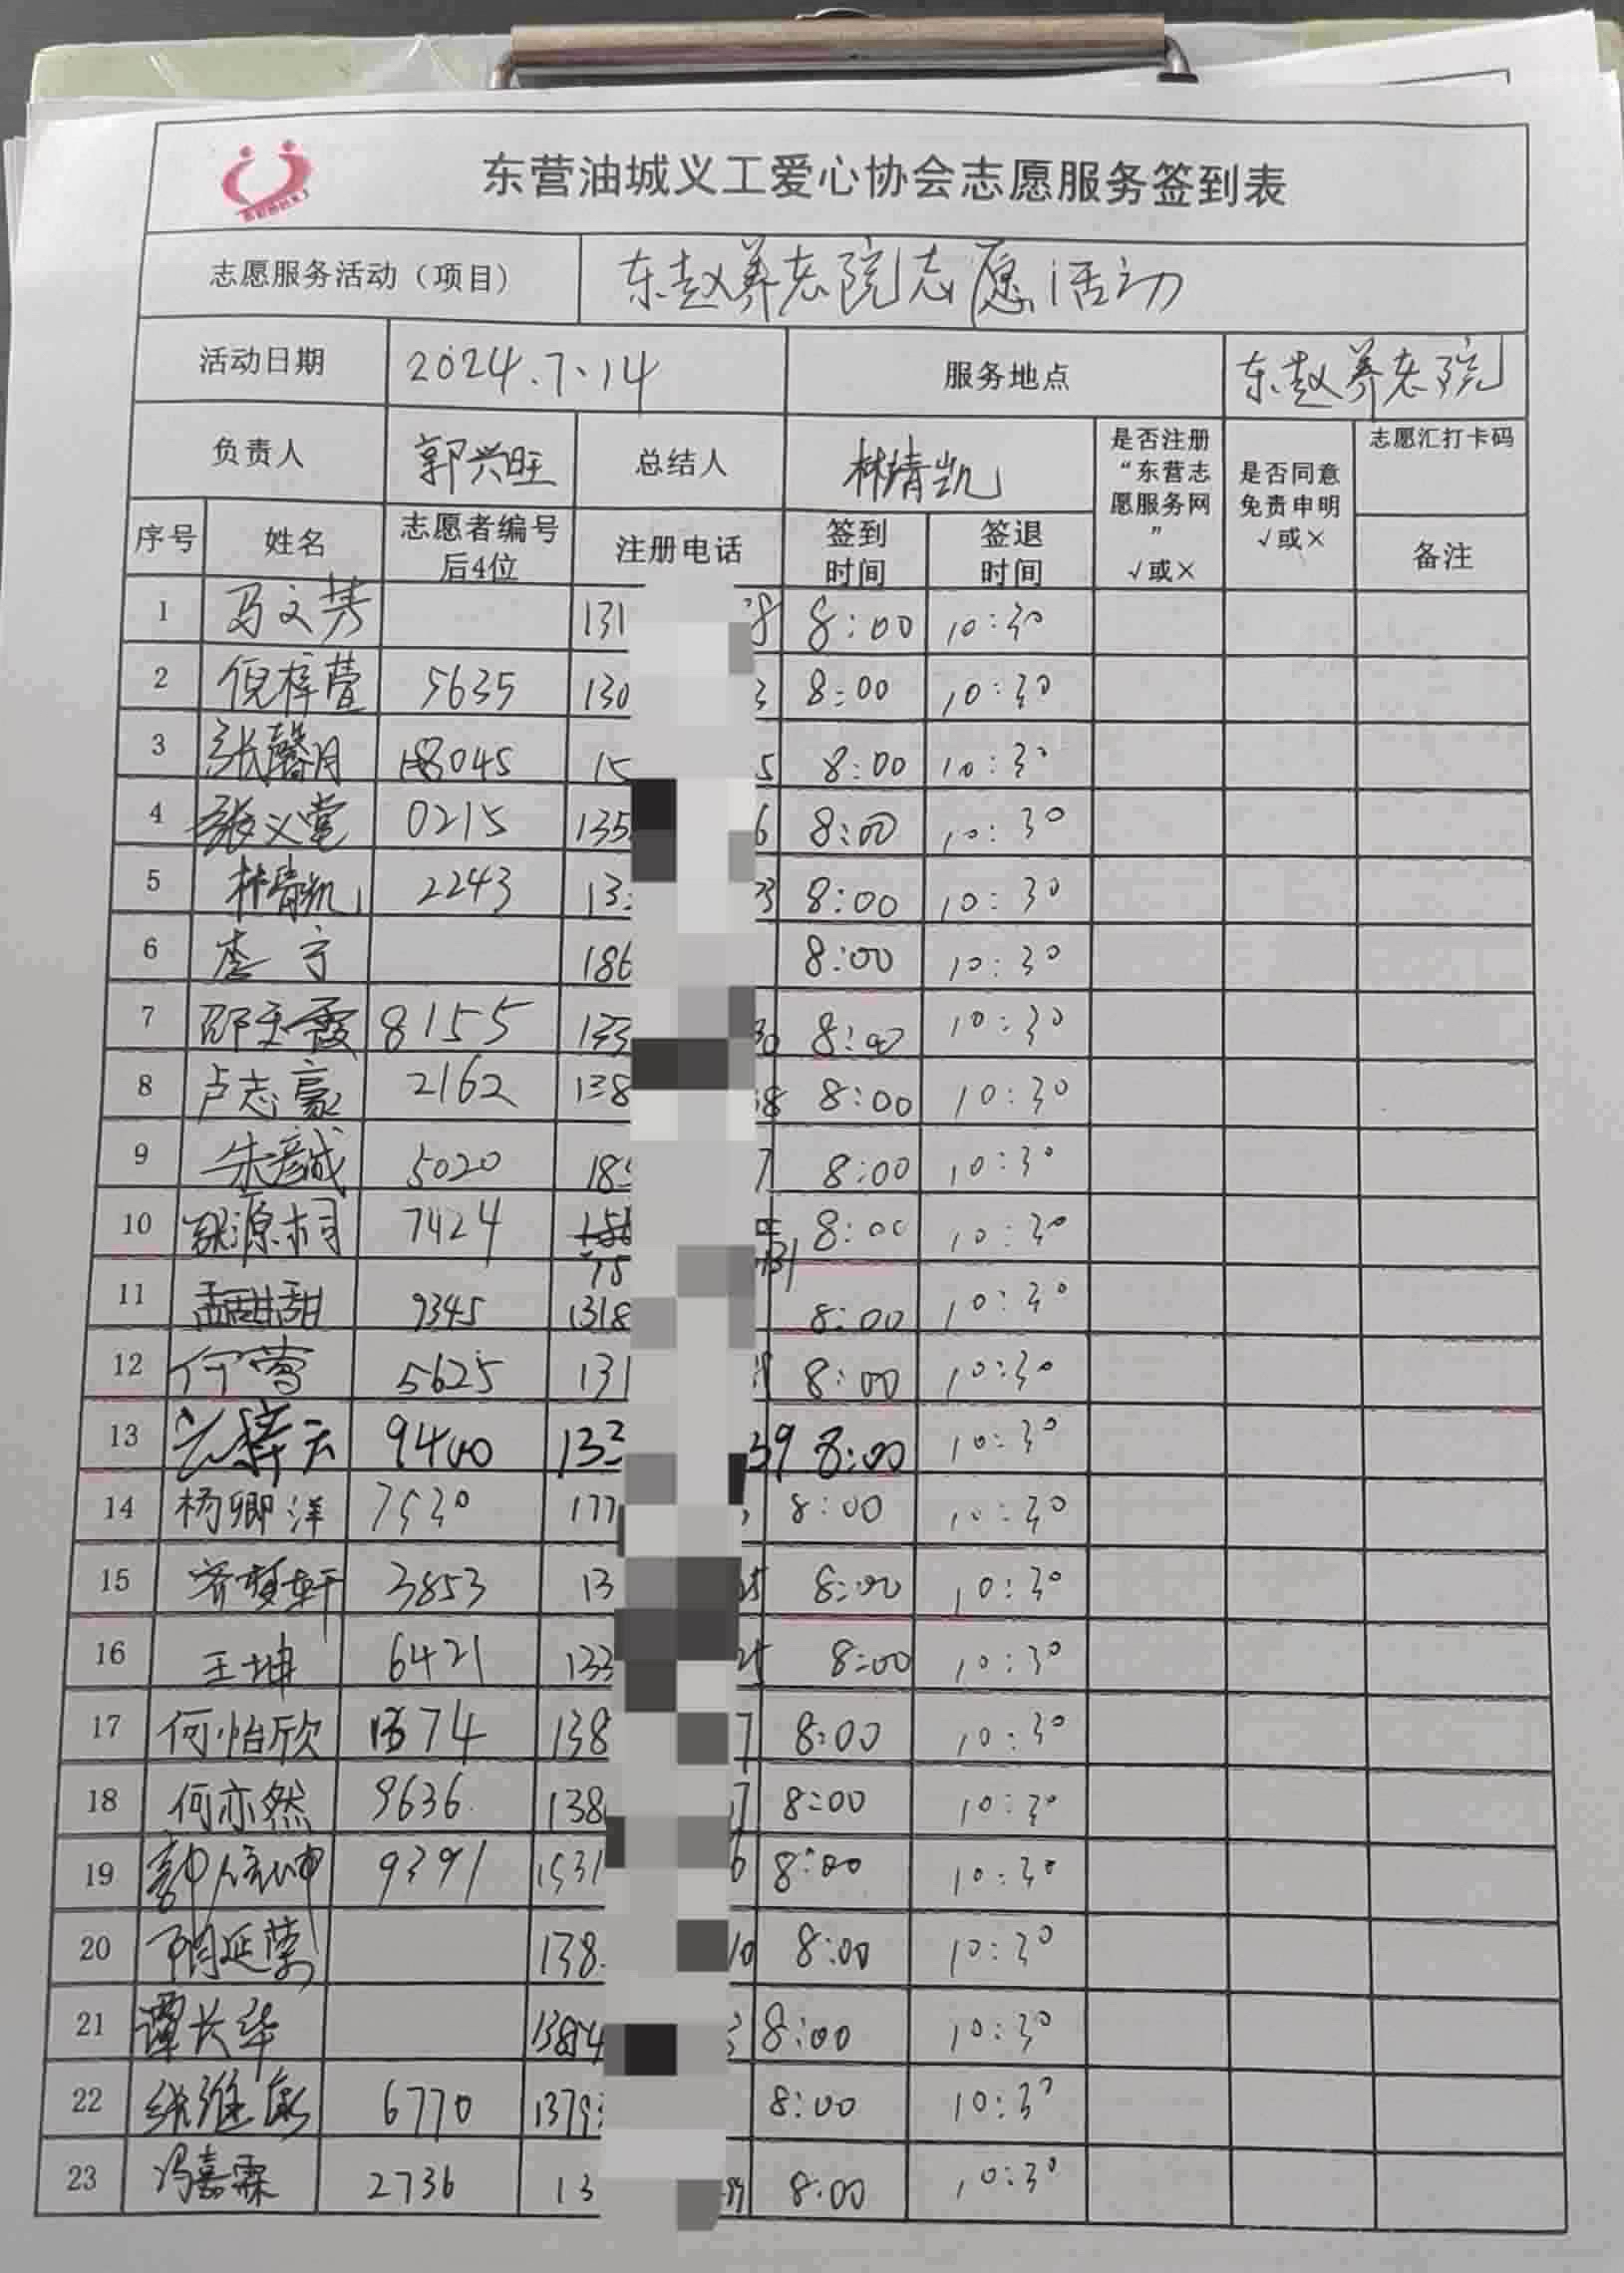 东营油城义工爱心协会志愿服务签到表
志愿服务活动（项目） 东赵养老院志愿活动
活动日期 2024.7.14 服务地点 东赵养老院
负责人 郭兴旺 总结人 林靖凯 是否注册“东营志愿服务网” √或× 是否同意免责申明 √或× 志愿汇打卡码
序号 姓名 志愿者编号后4位 注册电话 签到时间 签退时间 备注
1 马文芳 131 8 8:00 10:30
2 倪梓萱 5635 130 3 8:00 10:30
3 张馨月 8045 15 5 8:00 10:30
4 张义堂 0215 135 6 8:00 10:30
5 林靖凯 2243 13 3 8:00 10:30
6 李宁 186 8:00 10:30
7 邵玉霞 8155 133 30 8:00 10:30
8 卢志豪 2162 138 38 8:00 10:30
9 朱彦诚 5020 185 7 8:00 10:30
10 源桐 7424 15 131 8:00 10:30
11 孟甜甜 9345 1318 8:00 10:30
12 何莺 5625 131 8:00 10:30
13 9400 133 39 8:00 10:30
14 杨卿洋 7530 177 8:00 10:30
15 齐梦轩 3853 13 5 8:00 10:30
16 王坤 6421 133 8:00 10:30
17 何怡欣 74 138 7 8:00 10:30
18 何亦然 9636 138 7 8:00 10:30
19 9391 1531 6 8:00 10:30
20 延 138 10 8:00 10:30
21 谭长华 1385 3 8:00 10:30
22 张维 6770 1379 8:00 10:30
23 冯嘉霖 2736 13 8:00 10:30